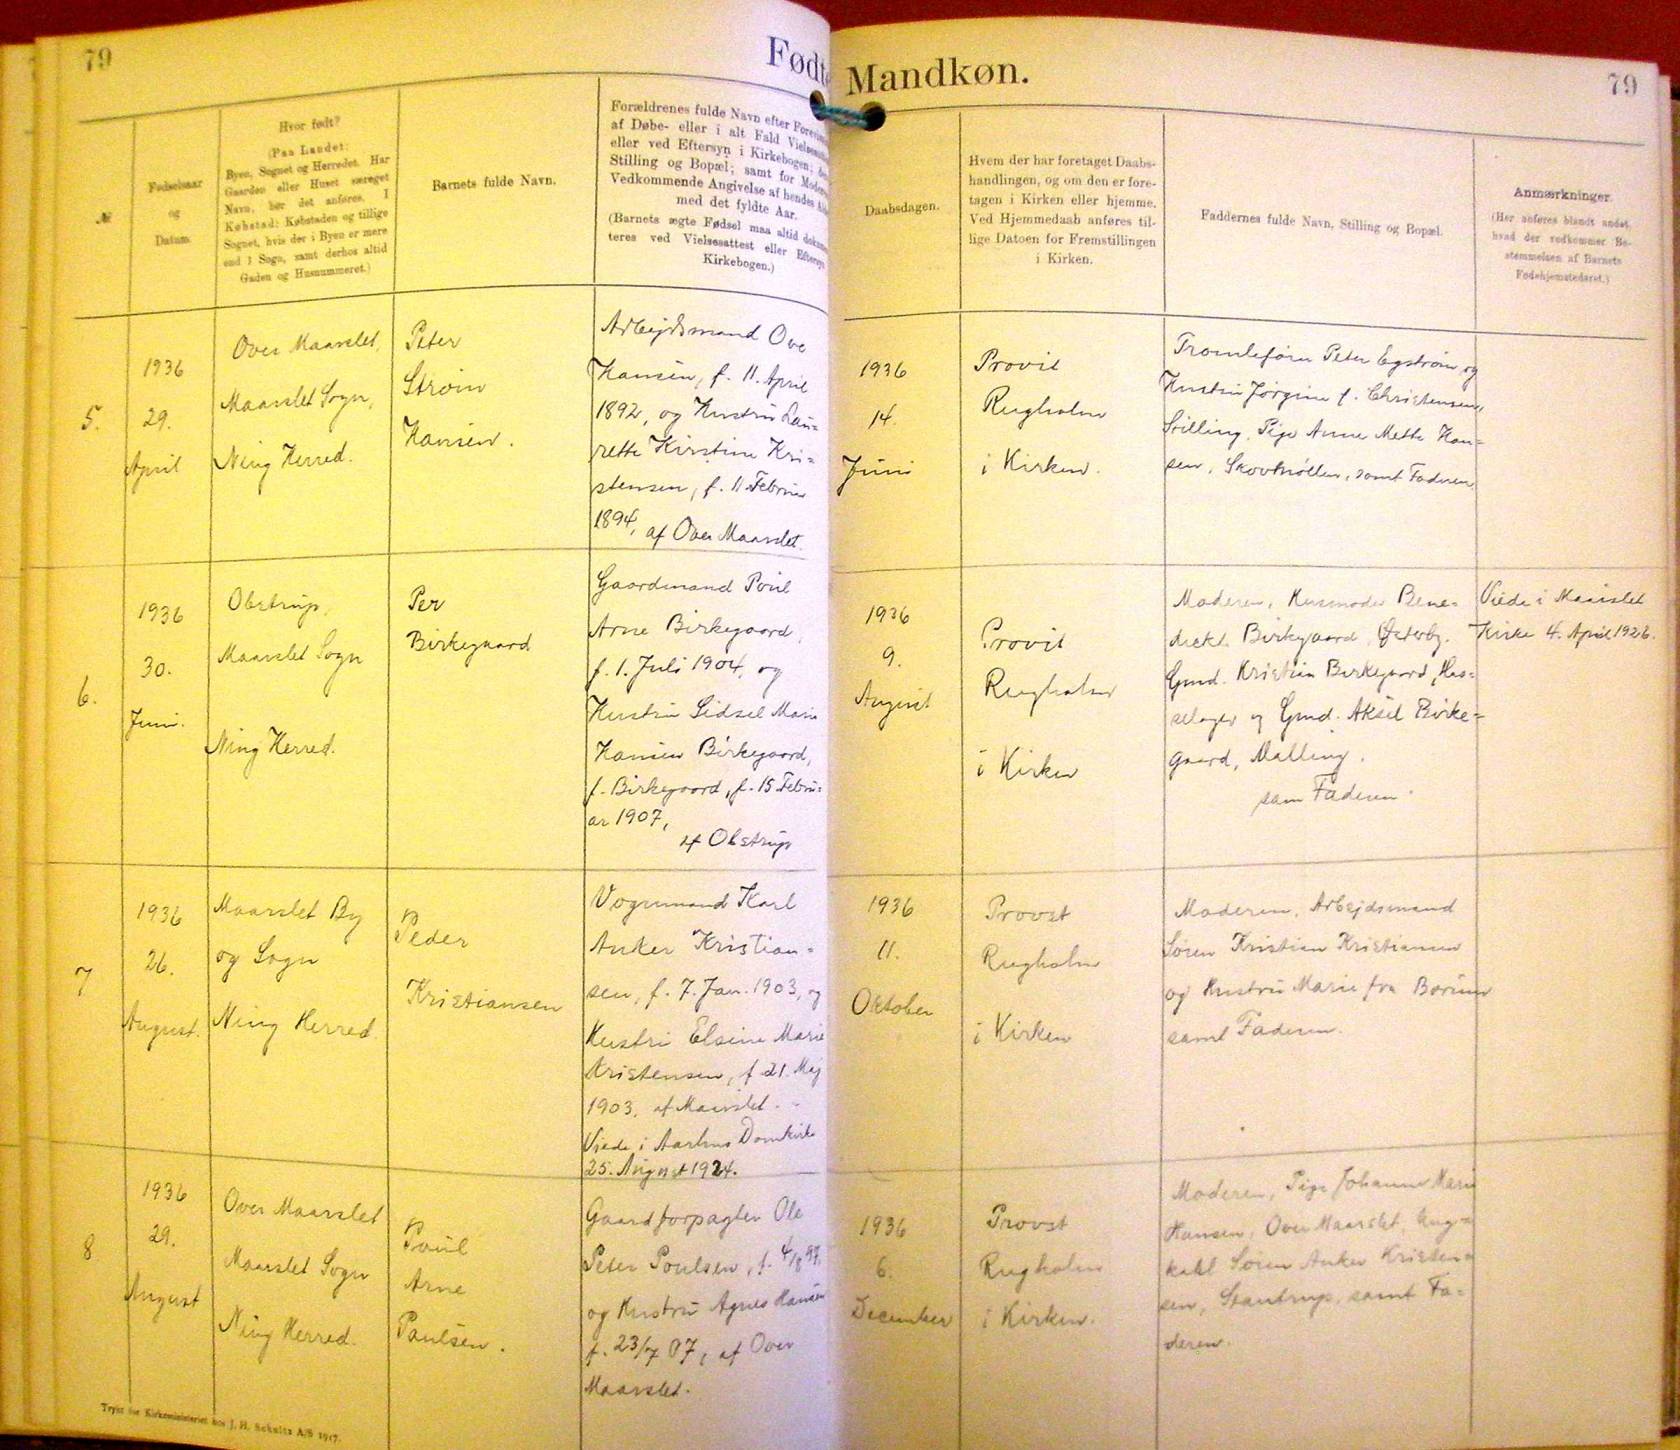 79
Født
Mandkøn.
79
№
Fødselsaar
og
Datum.
Hvor født?
(Paa Landet:
Byen, Sognet og Herredet. Har
Gaarden eller Huset særeget
Navn, bør det anføres. I
Købstad: Købstaden og tillige
Sognet, hvis der i Byen er mere
end 1 Sogn, samt derhos altid
Gaden og Husnummeret.)
Barnets fulde Navn.
Forældrenes fulde Navn efter
af Døbe- eller i alt Fald
eller ved Eftersyn i Kirkebogen;
Stilling og Bopæl; samt for
Vedkommende Angivelse af hendes
med det fyldte Aar.
(Barnets ægte Fødsel maa altid
teres ved Vielsesattest eller
Kirkebogen.)
Daabsdagen.
Hvem der har foretaget Daabs-
handlingen, og om den er fore-
tagen i Kirken eller hjemme.
Ved Hjemmedaab anføres til-
lige Datoen for Fremstillingen
i Kirken.
Faddernes fulde Navn, Stilling og Bopæl.
Anmærkninger.
(Her anføres blandt andet,
hvad der vedkommer Be-
stemmelsen af Barnets
Fødehjemstedsret.)
5.
1936
29.
April
Over Maarslet,
Maarslet Sogn,
Ning Herred.
Peter
Strøm
Hansen.
Arbejdsmand Ove
Hansen, f. 11. April
1892, og Hustru Lau=
rette Kirstine Kri=
stensen, f. 11 Februar
1894, af Over Maarslet.
1936
14.
Juni
Provst
Rugholm
i Kirken.
Tromlefører Peter Egstrøm og
Hustru Jørgine f. Christensen,
Stilling, Pige Anne Mette Han=
sen, Skovmøllen, samt Faderen.
6.
1936
30.
Juni.
Obstrup,
Maarslet Sogn
Ning Herred.
Per
Birkegaard
Gaardmand Poul
Arne Birkegaard,
f. 1. Juli 1904, og
Hustru Sidsel Marie
Hansen Birkegaard,
f. Birkegaard, f. 15 Febru=
ar 1907,
af Obstrup
1936
9.
August
Provst
Rugholm
i Kirken
Moderen, Husmoder Bene=
dickte Birkegaard, Østerby.
Gmd. Kristian Birkegaard, Has=
selager og Gmd. Aksel Birke=
gaard, Malling.
sam Faderen.
Viede i Maarslet
Kirke 4. April 1926.
7
1936
26.
August.
Maarslet By
og Sogn
Ning Herred
Peder
Kristiansen
Vognmand Karl
Anker Kristian=
sen, f. 7. Jan. 1903, og
Hustru Elsine Marie
Kristensen, f. 21. Maj
1903, af Maarslet.
Viede i Aarhus Domkirke
25. August 1924.
1936
11.
Oktober
Provst
Rugholm
i Kirken
Moderen, Arbejdsmand
Søren Kristian Kristiansen
og Hustru Marie fra Borum
samt Faderen.
8
1936
29.
August
Over Maarslet
Maarslet Sogn
Ning Herred.
Poul
Arne
Poulsen.
Gaardforpagter Ole
Peter Poulsen, f. 4/8 97,
og Hustru Agnes Hansen
f. 23/7 07, af Over
Maarslet.
1936
6.
December
Provst
Rugholm
i Kirken.
Moderen, Pige Johanne Marie
Hansen, Over Maarslet, Ung=
karl Søren Anker Kristen=
sen, Stautrup, samt Fa=
deren.
Trykt for Kirkeministeriet hos J. H. Schultz A/S 1917.